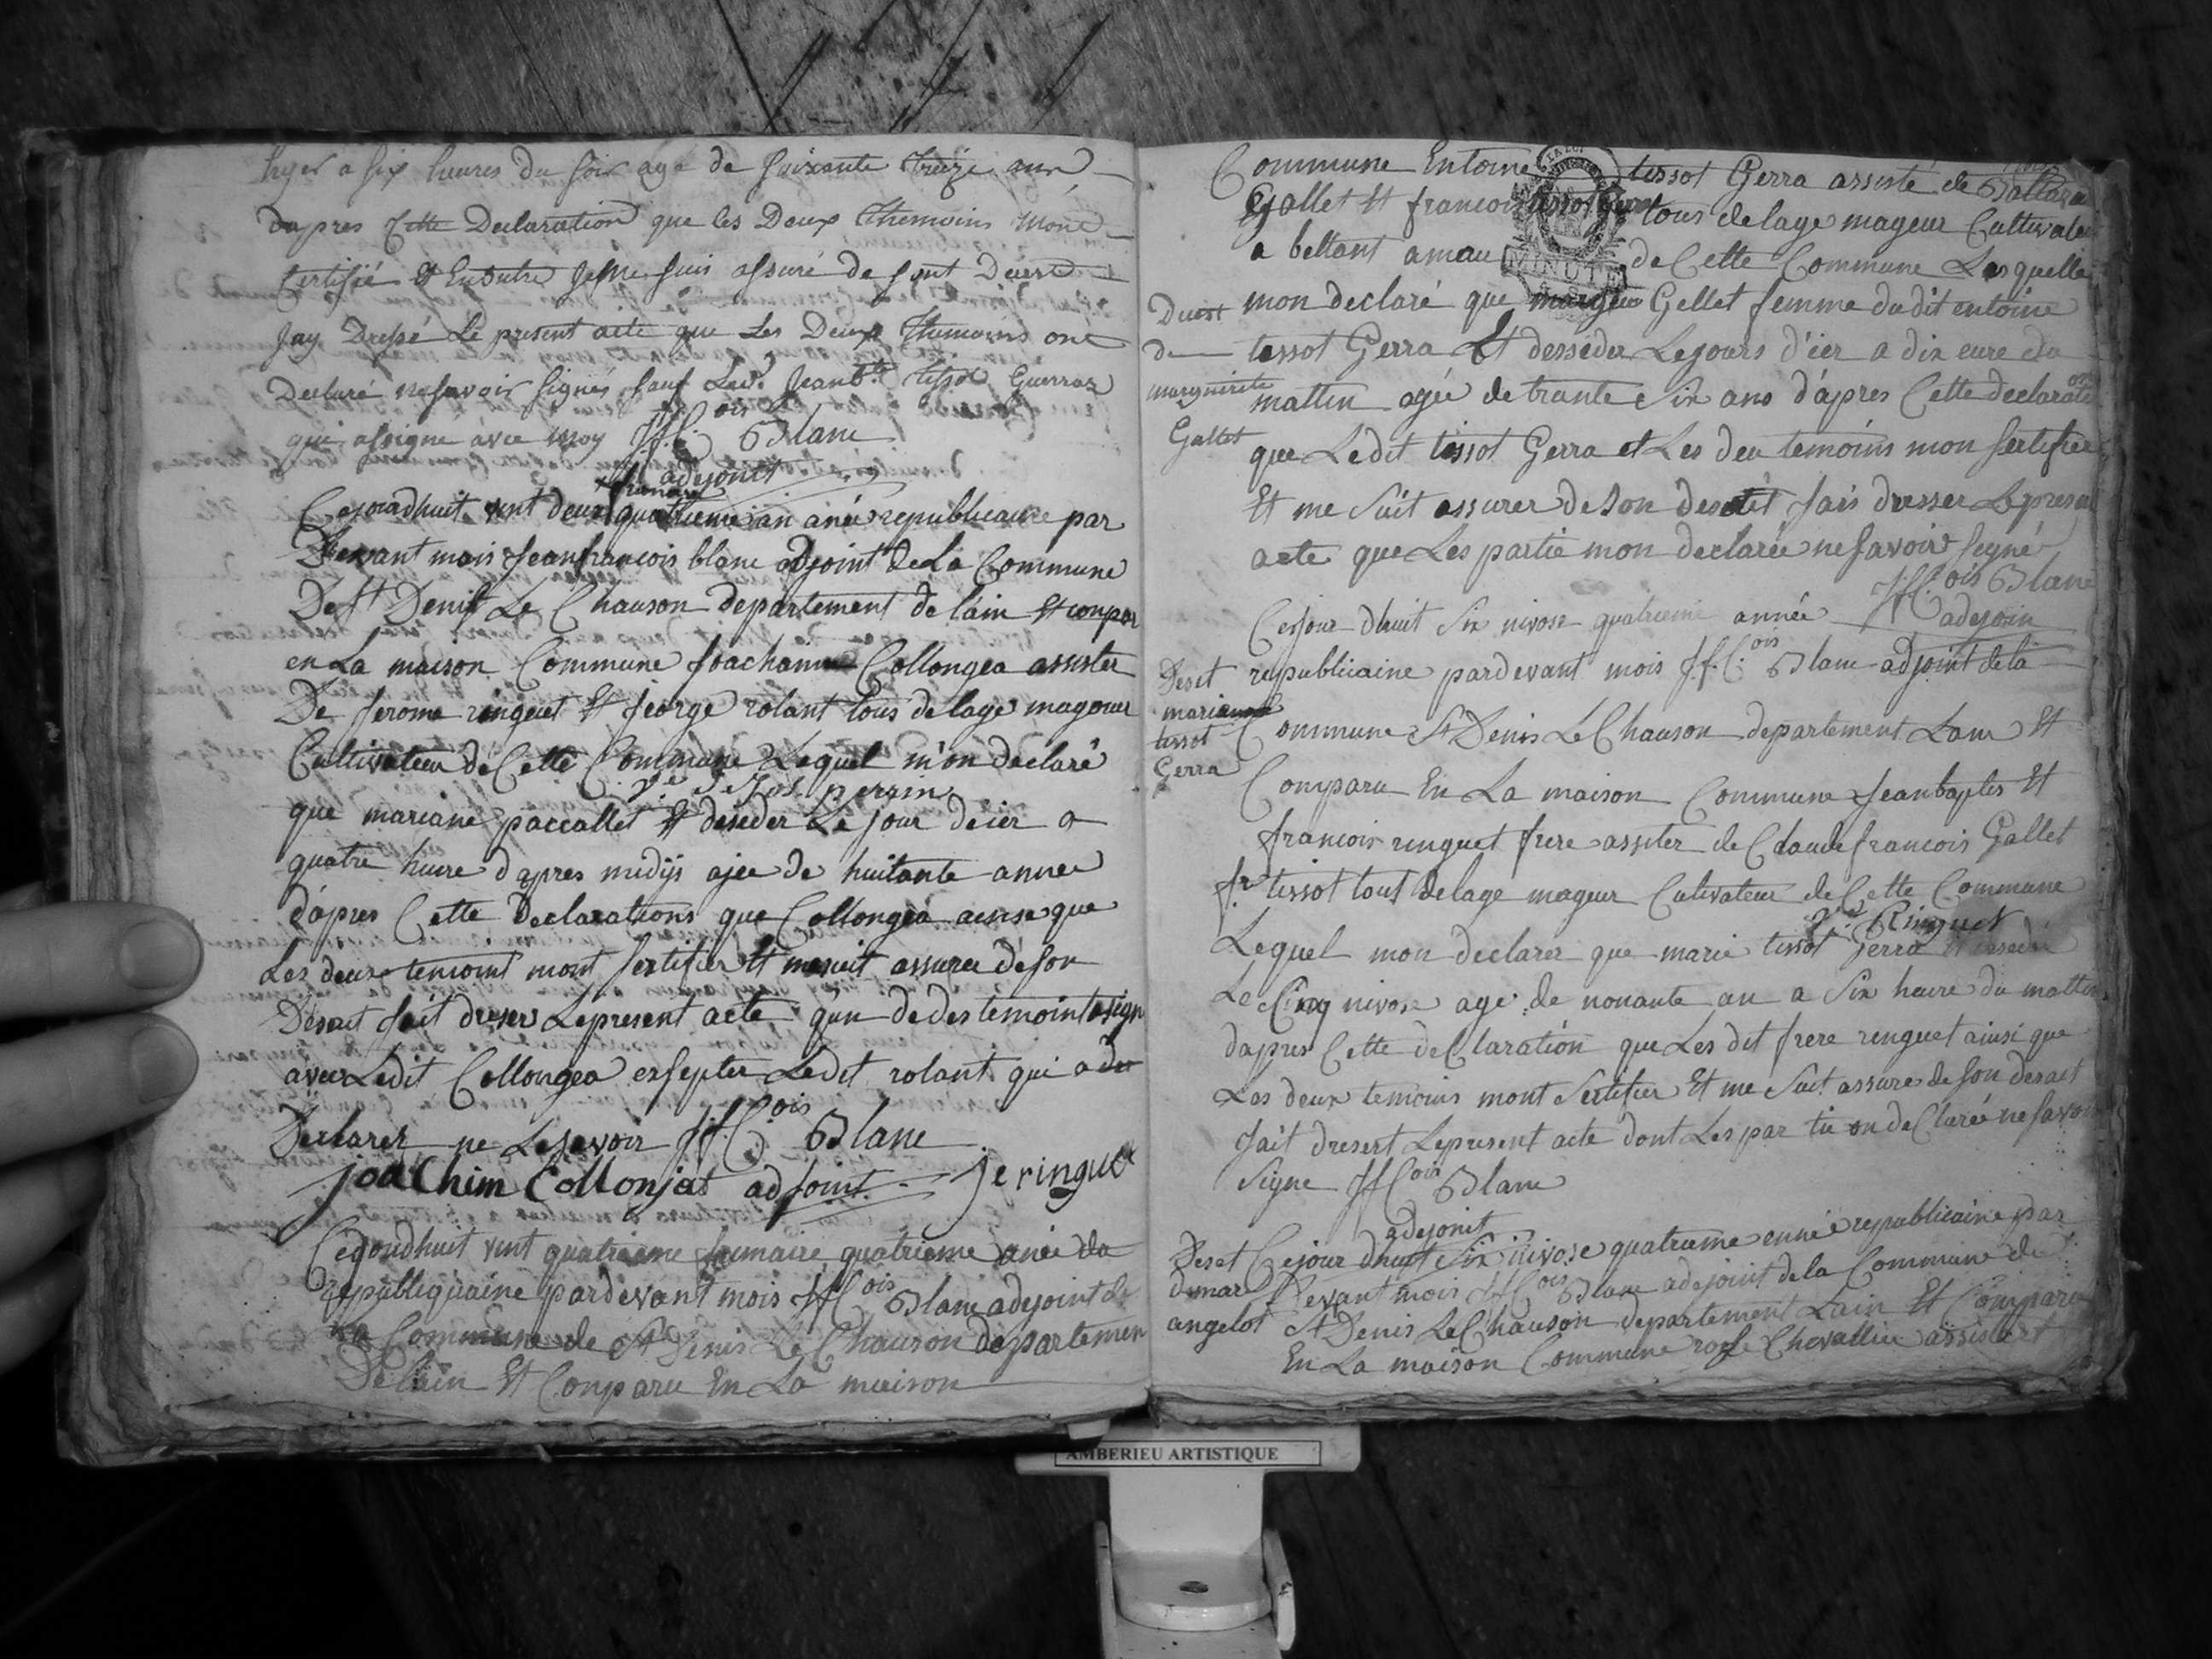 hyer a six heures du soir agé de soixante treize ans
dapres Cette Declaration que les Deux Themoins mont
Certifié Et Enoutre Jeme suis assuré de sont Décest
Jay Dressé Le present acte que Les Deux Themoins ont
Declaré nesavoir signés sauf Led.t Jeanb.te tissot Guerraz
qui assigné avec moy JfC.ois Blanc
adejoint
frimaire
Cejouadhuit vint deux quatrieme an anée republicaine par
Devant mois Jeanfrancois blanc adjoint deLa Commune
De St Denis Le Chauson departement de lain Et conpar
en La maison Commune Joachaim Collongea assister
De Jerome renguet Et George rolant tous delage mageur
Cultivateur de Cette Commune Lequel m'on declaré
v.e de Jos. perrin
que mariane paccallet Et deseder Le jour deier a
quatre heure dapres midijs ajee de huitante annee
dápres Cette declarations que Collongea ainse que
Les deux temoint mont sertifier Et mesuit assurer deson
Desait fait dreser Lepresent acte qún dedes temoint asign
avec Ledit Collongea exsepter Ledit rolant qui a du
Declarer ne Lesavoir JfC.ois Blanc
joaChim Collonjat adjoint jeringuet
Cejoudhuit vint quatrieme frimaire quatrieme anée da
republiquaine pardevant mois JfC.ois Blanc adejoint de
La Commune de St Denis Le Chauson departemen
Delain Et Conparu En La maison
Commune Entoine tissot Gerra assisté de Baltaza
Gallet Et francois tous delage mageur Cultivateu
a bettant amau de Cette Commune Lesquelle
mon declaré que Gellet femme dudit entoine
tessot Gerra Et desseder Lejours d'ier a dix eure du
mattin agée de trante Six ans d'apres Cette declaration
que Ledit tissot Gerra et Les deu temoins mon sertifier
Et me Suit assurer deson deset Jais dresser Lepresent
acte que Les partie mon declarée ne savoir segné
JfC.ois Blanc
adejoin
Decest
de
marguerite
Gallet
Cejour dhuit Six nivose quatrieme année
republicaine pardevant mois JfC.ois Blanc adjoint dela
Commune St Denis Le Chauson departement Lain Et
Comparu En La maison Commune Jeanbaptes Et
francois renguet frere assiter de Claudefrancois Gallet
fr. tissot tous delage mageur Cultivateur de Cette Commune
v.e Ringuet
Lequel mon declarer que marie tissot Gerra
Le Cinq nivose age de nonante an a Six heure du mattin
dapres Cette deClaration que Les dit frere renguet ainsi que
Les deux temoins mont Sertifier Et me Suit assure deson desait
Jait dresert Lepresent acte dont Les par tie on deClaré ne savoir
Signe JfCois Blanc
adejoint
Deset
mariane
tissot
Gerra
Cejour dhuit Six nivose quatrieme enneé republicaine par
Devant mois JfCois Blanc adejoint dela Commune de
St Denis Le Chauson departement Lain Et Comparu
En La maison Commune Chevallier assistert
Deset
demar
angelot
LA LOI
MINUTE
AMBERIEU ARTISTIQUE